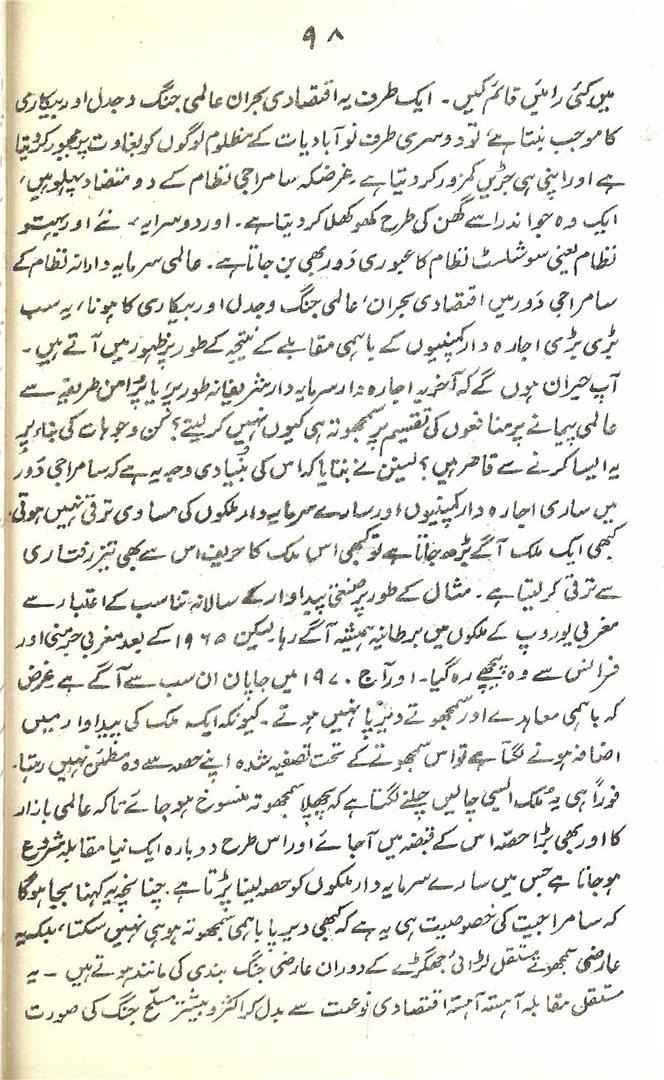 ۹۸
میں کئی رائیں قائم کیں۔ ایک طرف یہ اقتصادی بحران عالمی جنگ و جدل اور بیکاری
کا موجب بنتا ہے تو دوسری طرف نوآبادیات کے مظلوم لوگوں کو بغاوت پر مجبور کر دیتا
ہے اور اپنی ہی جڑیں کمزور کر دیتا ہے۔ غرضکہ سامراجی نظام کے دو متضاد پہلو ہیں،
ایک وہ جو اندر اسے گھن کی طرح کھوکھل کر دیتا ہے۔ اور دوسرا یہ، نئے اور بہتر
نظام یعنی سوشلسٹ نظام کا عبوری دَور بھی بن جاتا ہے۔ عالمی سرمایہ دارانہ نظام کے
سامراجی دَور میں اقتصادی بحران، عالمی جنگ و جدل اور بیکاری کا ہونا، یہ سب
بڑی بڑی اجارہ دار کمپنیوں کے باہمی مقابلے کے نتیجہ کے طور پر ظہور میں آتے ہیں۔
آپ حیران ہوں گے کہ آخر یہ اجارہ دار سرمایہ دار شریفانہ طور پر یا پُرامن طریقے سے
عالمی پیمانے پر منافعوں کی تقسیم پر سمجھوتہ ہی کیوں نہیں کر لیتے؟ کن وجوہات کی بناء پر
یہ ایسا کرنے سے قاصر ہیں؟ لینن نے بتایا کہ اس کی بُنیادی وجہ یہ ہے کہ سامراجی دَور
میں ساری اجارہ دار کمپنیوں اور سارے سرمایہ دار ملکوں کی مساوی ترقی نہیں ہوتی۔
کبھی ایک ملک آگے بڑھ جاتا ہے تو کبھی اس ملک کا حریف اس سے بھی تیز رفتاری
سے ترقی کر لیتا ہے۔ مثال کے طور پر صنعتی پیداوار کے سالانہ تناسب کے اعتبار سے
مغربی یوروپ کے ملکوں میں برطانیہ ہمیشہ آگے رہا لیکن ۱۹۶۵ کے بعد مغربی جرمنی اور
فرانس سے وہ پیچھے رہ گیا۔ اور آج ۱۹۷۰ میں جاپان ان سب سے آگے ہے غرض
کہ باہمی معاہدے اور سمجھوتے دیرپا نہیں ہوتے۔ کیونکہ ایک ملک کی پیداوار میں
اضافہ ہونے لگتا ہے تو اس سمجھوتے کے تحت تصفیہ شدہ اپنے حصہ سے وہ مطمئن نہیں رہتا۔
فوراً ہی یہ مُلک ایسی چالیں چلنے لگتا ہے کہ پچھلا سمجھوتہ منسوخ ہو جائے تاکہ عالمی بازار
کا اور بھی بڑا حصّہ اس کے قبضہ میں آجائے اور اس طرح دوبارہ ایک نیا مقابلہ شروع
ہو جاتا ہے جس میں سارے سرمایہ دار ملکوں کو حصہ لینا پڑتا ہے۔ چنانچہ یہ کہنا بجا ہوگا
کہ سامراجیت کی خصوصیت ہی یہ ہے کہ کبھی دیرپا باہمی سمجھوتہ ہو ہی نہیں سکتا، بلکہ یہ
عارضی سمجھوتے مستقل لڑائی جھگڑے کے دوران عارضی جنگ بندی کی مانند ہوتے ہیں ۔ یہ
مستقل مقابلہ آہستہ آہستہ اقتصادی نوعیت سے بدل کر اکثر و بیشتر مسلح جنگ کی صورت